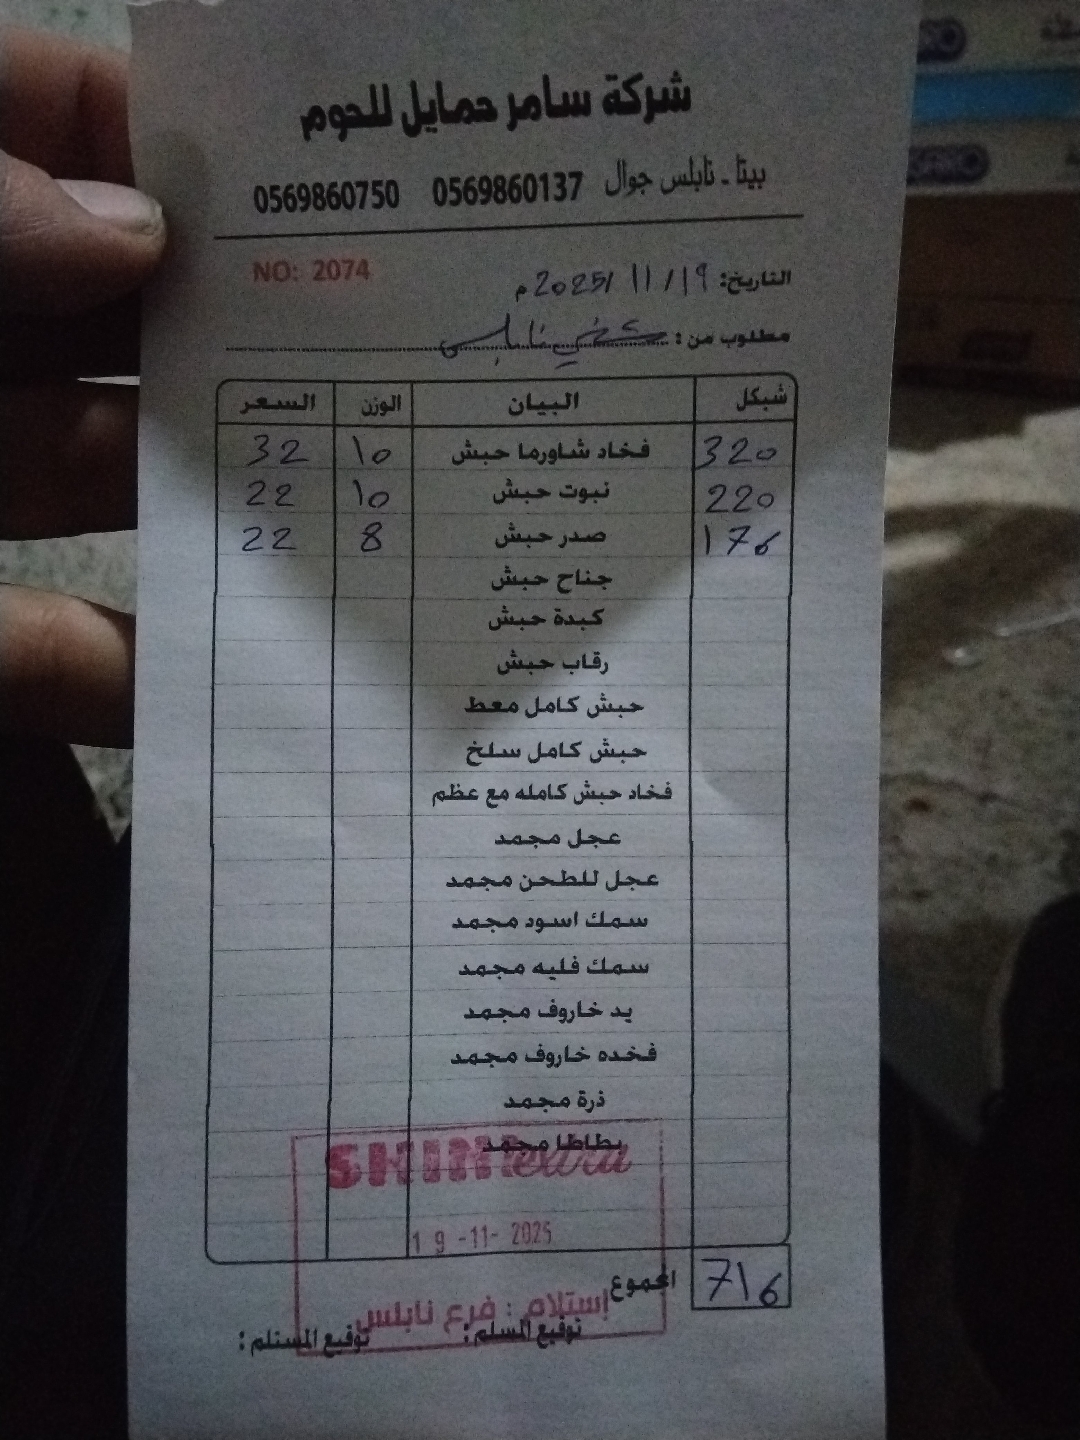 شركة سامر حمايل للحوم
بيتا - نابلس جوال 0569860137 0569860750
NO: 2074
التاريخ: 19 / 11 / 2025م
مطلوب من: نابلس
شيكل البيان الوزن السعر
320 فخاد شاورما حبش 10 32
220 نبوت حبش 10 22
176 صدر حبش 8 22
جناح حبش
كبدة حبش
رقاب حبش
حبش كامل معط
حبش كامل سلخ
فخاد حبش كامله مع عظم
عجل مجمد
عجل للطحن مجمد
سمك اسود مجمد
سمك فليه مجمد
يد خاروف مجمد
فخده خاروف مجمد
ذرة مجمد
بطاطا مجمد
19 -11- 2025
المجموع 716
إستلام : فرع نابلس
توقيع المسلم : توقيع المستلم :